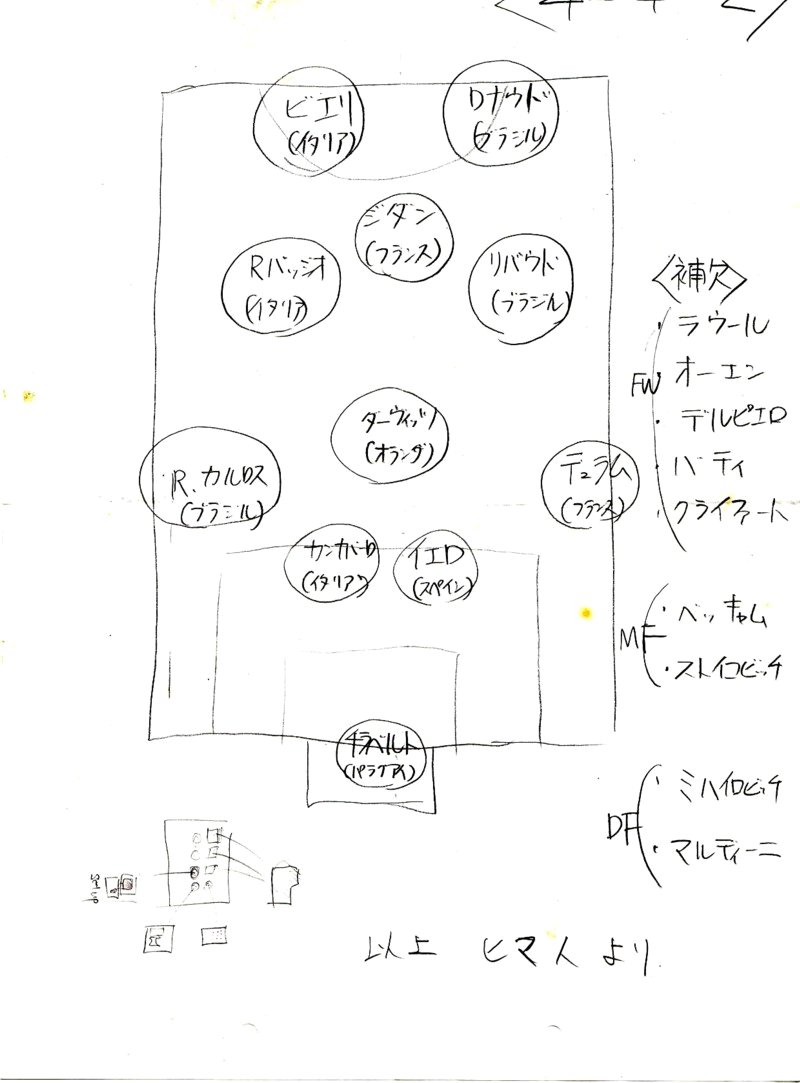 <4-4-2>
ビエリ
(イタリア)
ロナウド
(ブラジル)
ジダン
(フランス)
Rバッジオ
(イタリア)
リバウド
(ブラジル)
ダーヴィッツ
(オランダ)
R.カルロス
(ブラジル)
テュラム
(フランス)
カンナバーロ
(イタリア)
イエロ
(スペイン)
チラベルト
(パラグアイ)
<補欠>
FW
・ラウール
・オーエン
・デルピエロ
・バティ
・クライファート
MF
・ベッキャム
・ストイコビッチ
DF
・ミハイロビッチ
・マルディーニ
Set up
以上 ヒマ人より